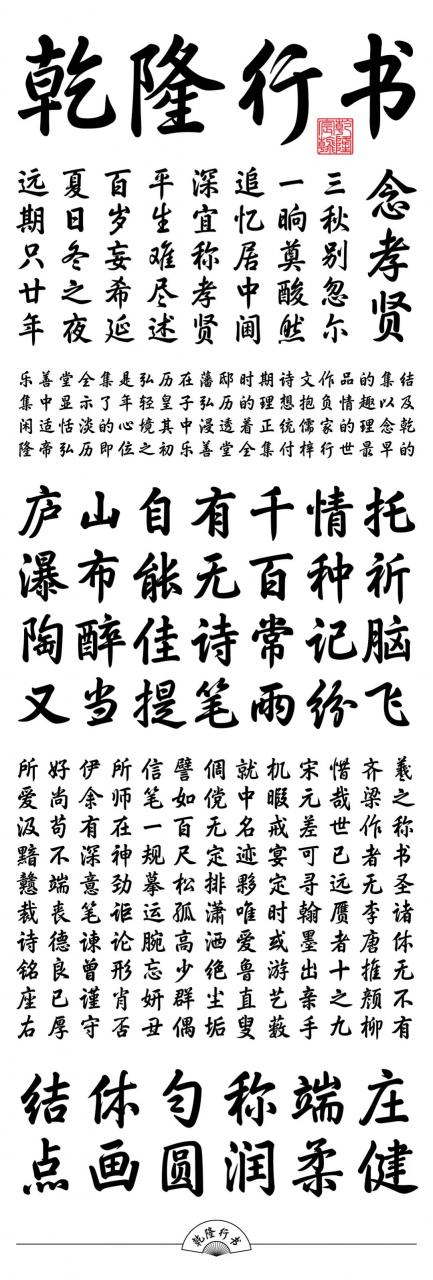 乾隆行书
念孝贤
三秋别忽尔
一晌奠酸然
追忆居中阃
深宜称孝贤
平生难尽述
百岁妄希延
夏日冬之夜
远期只廿年
乐善堂全集是弘历在藩邸时期诗文作品的集结
集中显示了年轻皇子弘历的理想抱负情趣以及
闲适恬淡的心境其中浸透着正统儒家的理念乾
隆帝弘历即位之初乐善堂全集付梓行世最早的
庐山自有千情托
瀑布能无百种祈
陶醉佳诗常记脑
又当提笔雨纷飞
羲之称书圣诸体无不有
齐梁作者无李唐推颜柳
惜哉世已远赝者十之九
宋元差可寻翰墨出亲手
机暇戒宴定时或游艺薮
就中名迹夥唯爱鲁直叟
倜傥无定排潇洒绝尘垢
譬如百尺松孤高少群偶
信笔一规摹运腕忘妍丑
所师在神劲讵论形肖否
伊余有深意笔谏曾谨守
好尚苟不端丧德良已厚
所爱汲黯戆裁诗铭座右
结体匀称端庄
点画圆润柔健
乾隆行书